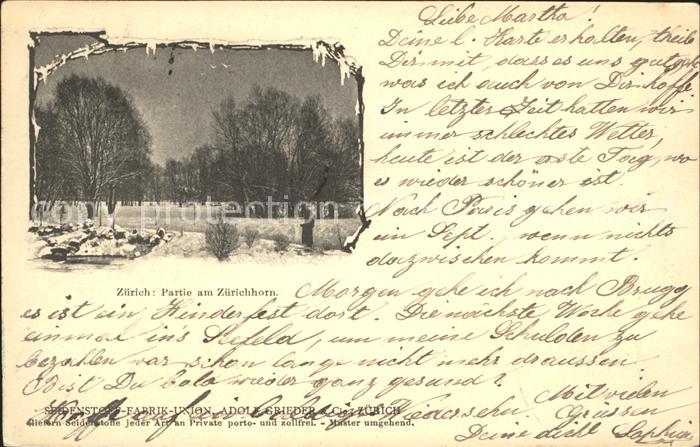 Liebe Martha!
Deine l. Karte erhalten, theile
Dir mit, dass es uns gut geht
was ich auch von Dir hoffe.
In letzter Zeit hatten wir
immer schlechtes Wetter,
heute ist der erste Tag, wo
es wieder schöner ist.
Nach Paris gehen wir
im Sept. wenn nichts
dazwischen kommt.
Zürich: Partie am Zürichhorn.
Morgen gehe ich nach Brugg
es ist ein Kinderfest dort. Die nächste Woche gehe
einmal in's Seefeld, um meine Schulden zu
bezahlen war schon lange nicht mehr draussen
Bist Du bald wieder ganz gesund?
Hoffe auf ein baldiges Wiedersehn.
Mit vielen
Grüssen
Deine Sophie
SEIDENSTOFF-FABRIK-UNION, ADOLF GRIEDER & Cie., ZÜRICH
liefern Seidenstoffe jeder Art an Private porto- und zollfrei. - Muster umgehend.
copyright protection